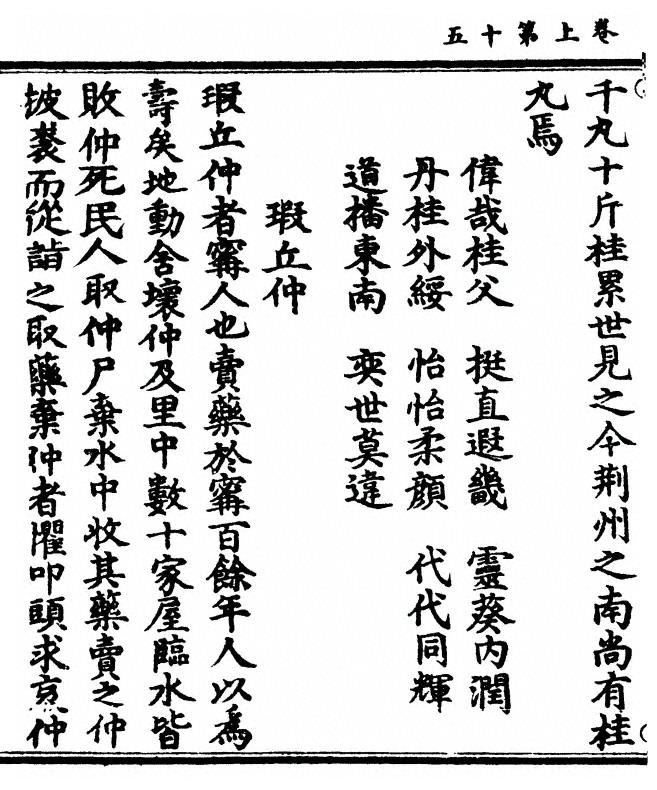 卷上第十五
千丸十斤桂累世見之今荆州之南尚有桂
丸焉
偉哉桂父　挺直遐畿　靈葵内潤
丹桂外綏　怡怡柔顔　代代同輝
道播東南　奕世莫違
瑕丘仲
瑕丘仲者甯人也賣藥於甯百餘年人以為
壽矣地動舍壞仲及里中數十家屋臨水皆
敗仲死民人取仲尸棄水中收其藥賣之仲
披裘而從詣之取藥棄仲者懼叩頭求哀仲